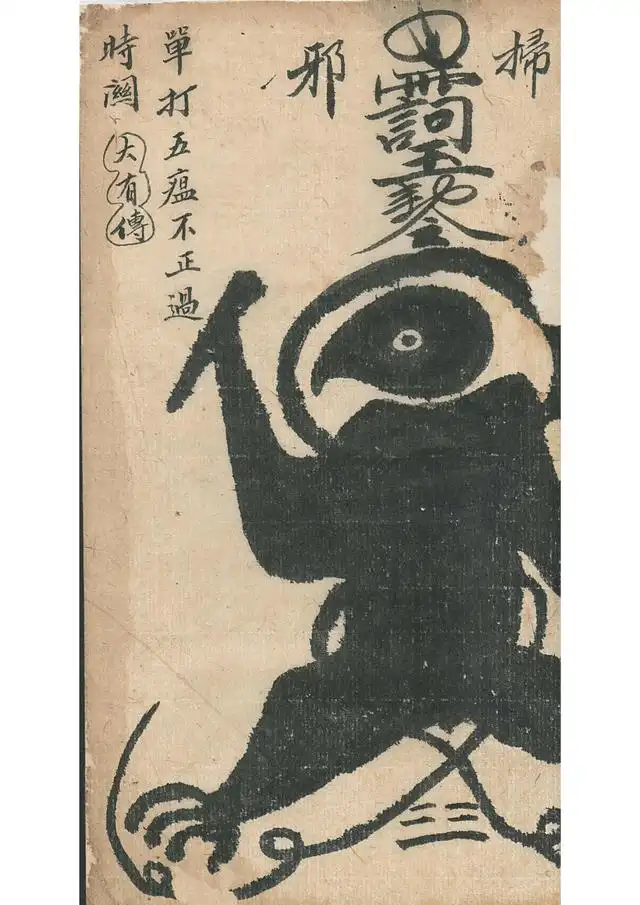 掃邪
單打五瘟不正過
時關大有傳